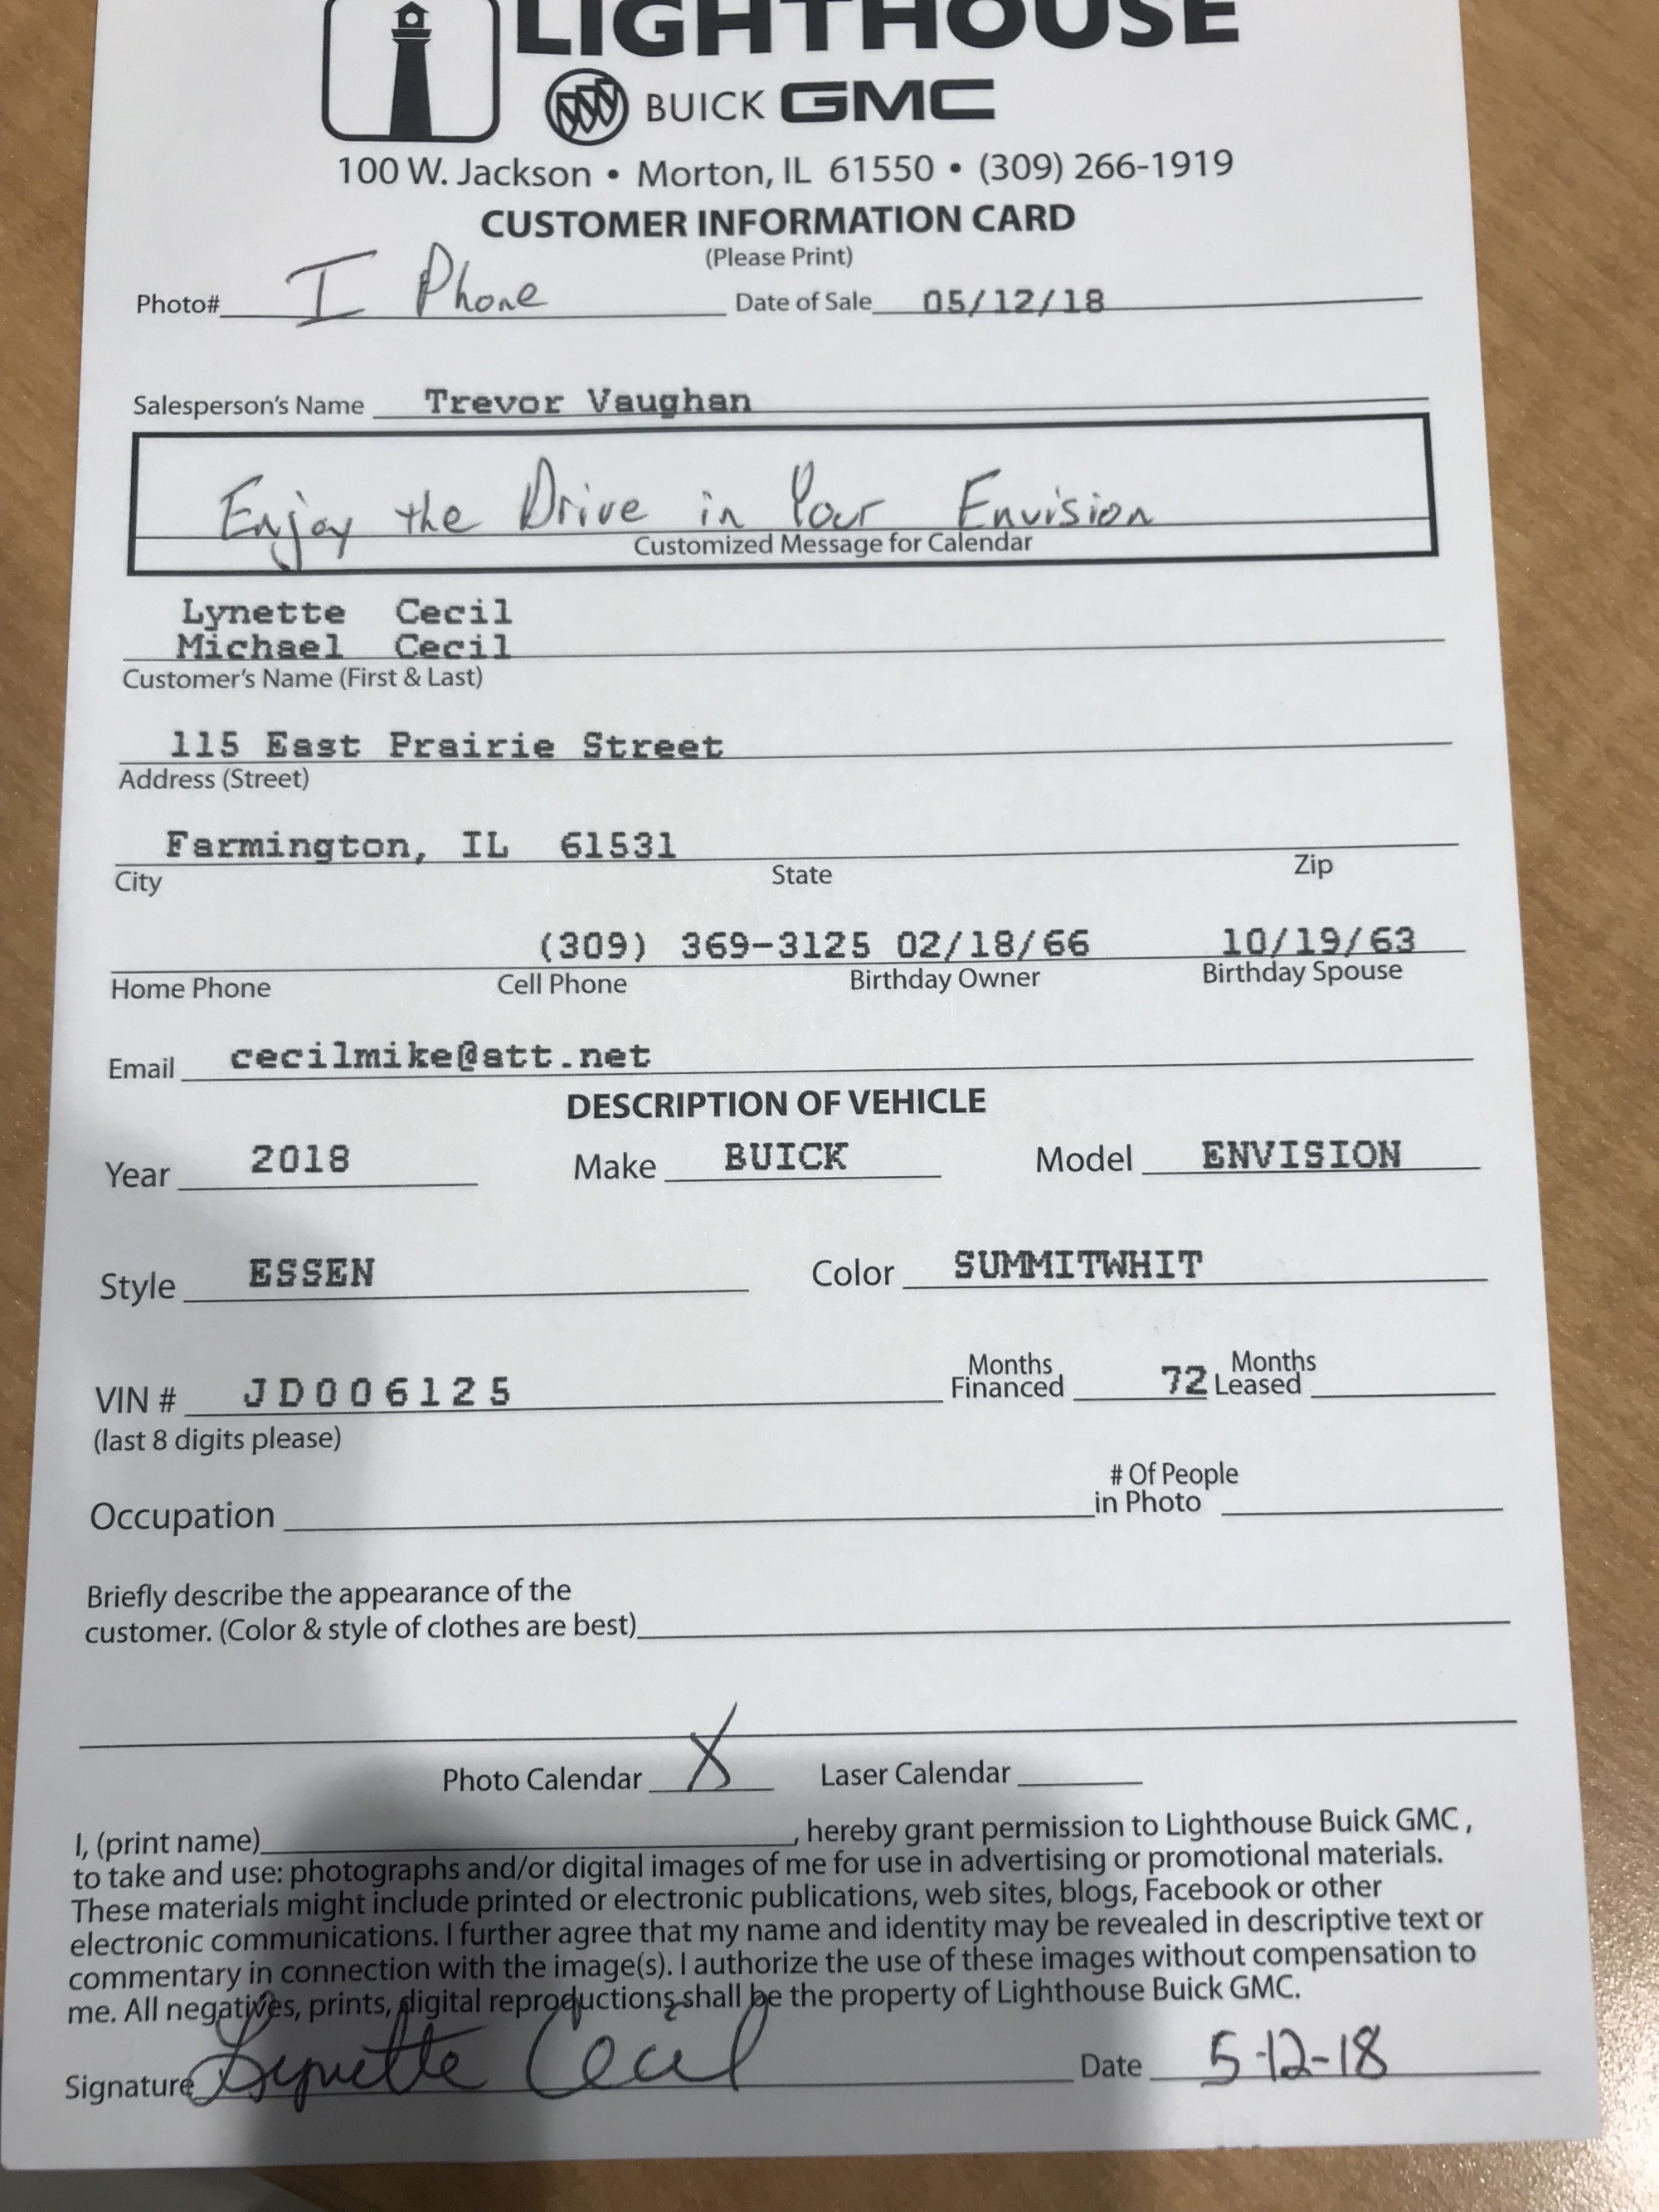 LIGHTHOUSE
BUICK GMC
100 W. Jackson • Morton, IL 61550 • (309) 266-1919
CUSTOMER INFORMATION CARD
(Please Print)
Photo# I Phone Date of Sale 05/12/18
Salesperson's Name Trevor Vaughan
Enjoy the Drive in Your Envision
Customized Message for Calendar
Lynette Cecil
Michael Cecil
Customer's Name (First & Last)
115 East Prairie Street
Address (Street)
Farmington, IL 61531
City State Zip
(309) 369-3125 02/18/66 10/19/63
Home Phone Cell Phone Birthday Owner Birthday Spouse
Email cecilmike@att.net
DESCRIPTION OF VEHICLE
Year 2018 Make BUICK Model ENVISION
Style ESSEN Color SUMMITWHIT
VIN # JD006125 Months Financed 72 Months Leased
(last 8 digits please)
Occupation # Of People in Photo
Briefly describe the appearance of the
customer. (Color & style of clothes are best)
Photo Calendar X Laser Calendar
I, (print name) , hereby grant permission to Lighthouse Buick GMC ,
to take and use: photographs and/or digital images of me for use in advertising or promotional materials.
These materials might include printed or electronic publications, web sites, blogs, Facebook or other
electronic communications. I further agree that my name and identity may be revealed in descriptive text or
commentary in connection with the image(s). I authorize the use of these images without compensation to
me. All negatives, prints, digital reproductions shall be the property of Lighthouse Buick GMC.
Signature Lynette Cecil Date 5-12-18